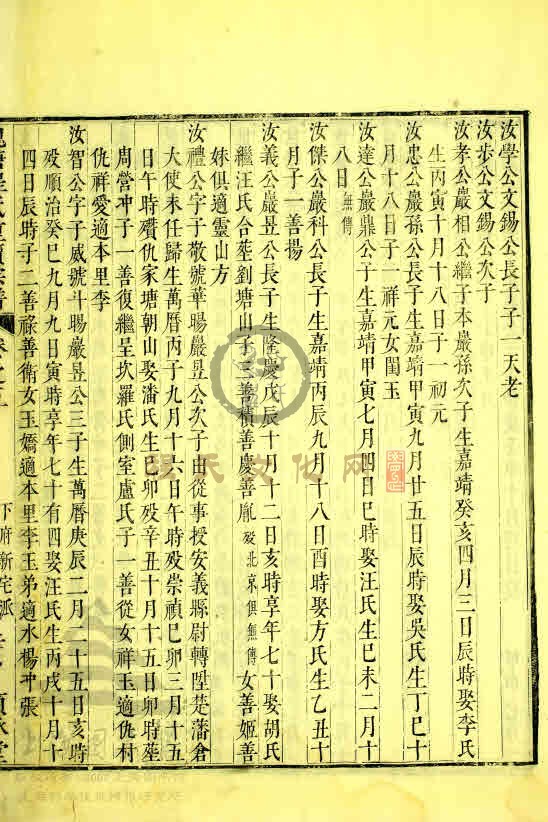 汝學公文錫公長子子一天老
汝步公文錫公次子
汝孝公巖相公繼子本巖孫次子生嘉靖癸亥四月三日辰時娶李氏
生丙寅十月十八日子一初元
汝忠公巖孫公長子生嘉靖甲寅九月廿五日辰時娶吳氏生丁巳十
月十八日子一祥元女閨玉
汝達公巖鼎公子生嘉靖甲寅七月四日巳時娶汪氏生己未二月十
八日無傳
汝傑公巖科公長子生嘉靖丙辰九月十八日酉時娶方氏生乙丑十
月子一善揚
汝義公巖昱公長子生隆慶戊辰十月十二日亥時享年七十娶胡氏
繼汪氏合塟劉塘山子三善積善慶善胤歿北京俱無傳女善姬善
妹俱適靈山方
汝禮公字子敬號華暘巖昱公次子由從事授安義縣尉轉陞楚藩倉
大使未任歸生萬曆丙子九月十六日午時歿崇禎己卯三月十五
日午時殯仇家塘朝山娶潘氏生己卯歿辛丑十月十五日卯時塟
周營冲子一善復繼呈坎羅氏側室盧氏子一善從女祥玉適仇村
仇祥愛適本里李
汝智公字子威號斗暘巖昱公三子生萬曆庚辰二月二十五日亥時
歿順治癸巳九月九日寅時享年七十有四娶汪氏生丙戌十月十
四日辰時子二善祿善衛女玉嬌適本里李玉弟適水楊冲張
下府新宅派